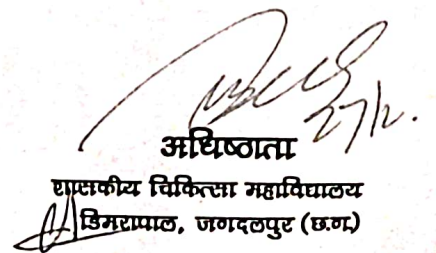 27/12.
अधिष्ठाता
शासकीय चिकित्सा महाविद्यालय
डिमरापाल, जगदलपुर (छ.ग.)